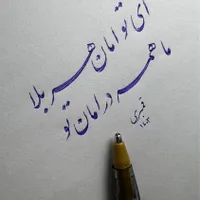 ای تو امان هر بلا
ما همه در امان تو
قمری
۱۴۰۳